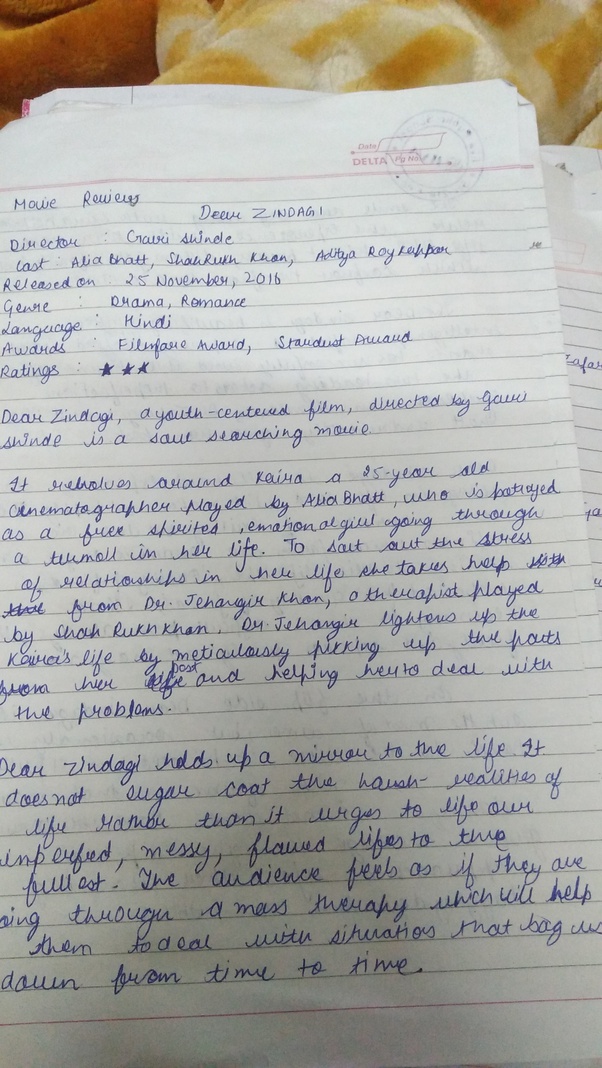 Date
DELTA Pg No.
Movie Review
Dear ZINDAGI
Director : Gauri Shinde
Cast : Alia Bhatt, ShahRukh Khan, Aditya Roy Kappor
Released on : 25 November, 2016
Genre : Drama, Romance
Language : Hindi
Awards : Filmfare Award, Stardust Award
Ratings : ★ ★ ★
Dear Zindagi, a youth-centered film, directed by Gauri
Shinde is a soul searching movie
It revolves around Kaira a 25-year old
cinematographer played by Alia Bhatt, who is potrayed
as a free spirited, emotional girl going through
a turmoil in her life. To sort out the stress
of relationships in her life she takes help
from Dr. Jehangir Khan, a therapist played
by Shah Rukh Khan. Dr. Jehangir lightens up the
Kaira's life by meticulously pikking up the parts
from her past and helping her to deal with
the problems.
Dear Zindagi holds up a mirror to the life. It
does not sugar coat the harsh-realities of
life rather than it urges to life our
imperfed, messy, flawed lifes to the
fullest. The audience feels as if they are
oing through a mass therapy which will help
them to deal with situation that bog us
down from time to time.